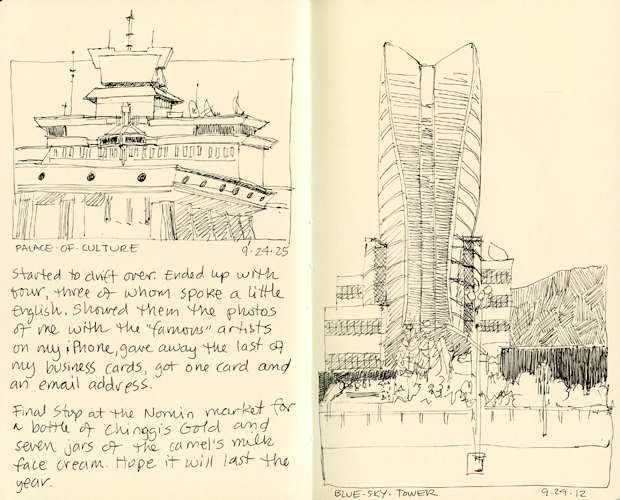 PALACE·OF·CULTURE 9·24·25
Started to drift over. Ended up with
four, three of whom spoke a little
English. Showed them the photos
of me with the "famous" artists
on my iPhone, gave away the last of
my business cards, got one card and
an email address.
Final stop at the Nomin market for
a bottle of Chinggis Gold and
seven jars of the camel's milk
face cream. Hope it will last the
year.
BLUE·SKY·TOWER 9·29·12